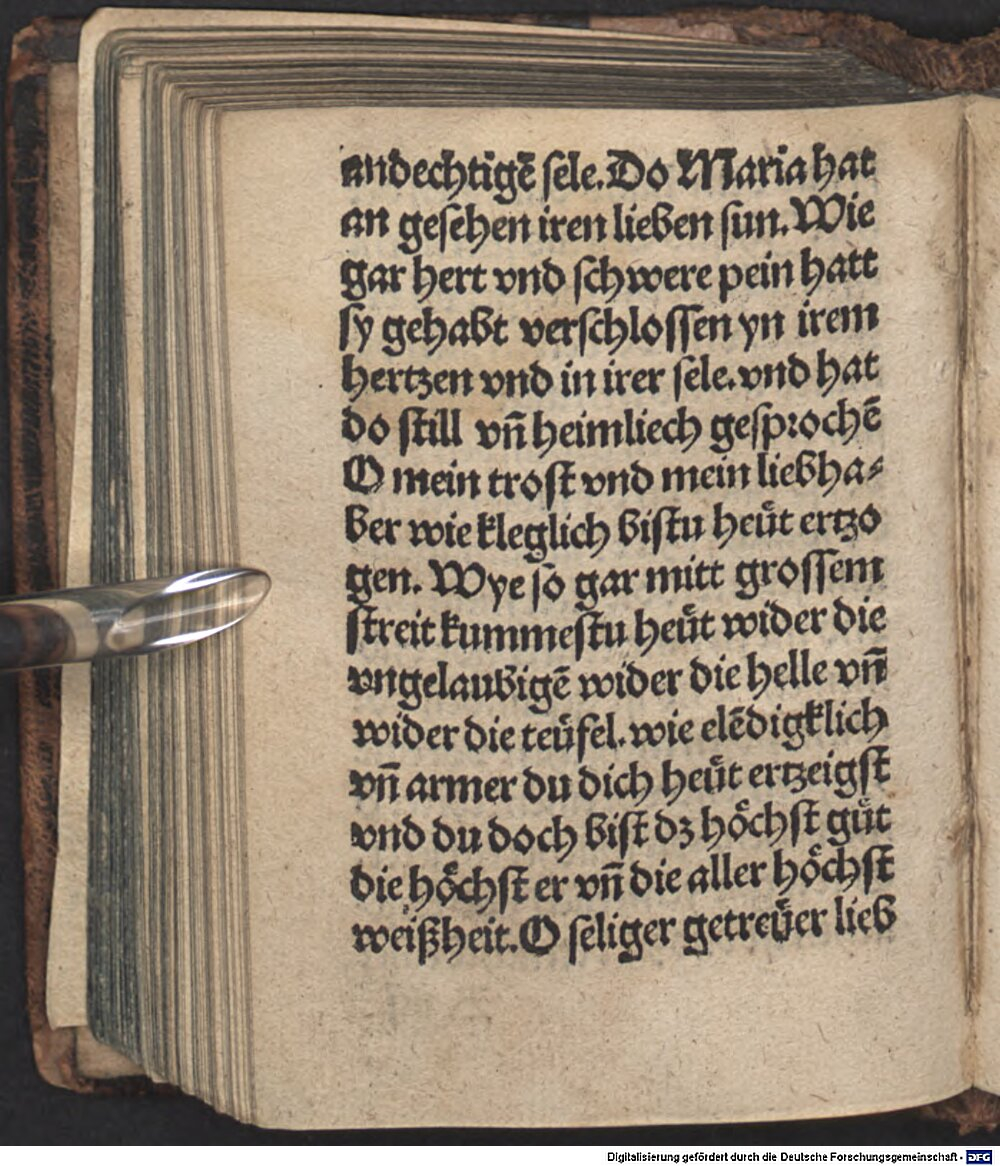 andechtigē ſele. Do Maria hat
an geſehen iren lieben ſun. Wie
gar hert vnd ſchwere pein hatt
ſy gehabt verſchloſſen yn irem
hertzen vnd in irer ſele. vnd hat
do ſtill vn̄ heimliech geſprochē
O mein troſt vnd mein liebha⸗
ber wie kleglich biſtu heüt ertzo
gen. Wye ſo gar mitt groſſem
ſtreit kummeſtu heüt wider die
vngelaubigē wider die helle vn̄
wider die teüfel. wie elēdigklich
vn̄ armer du dich heüt ertzeigſt
vnd du doch biſt dz hoͤchſt guͤt
die hoͤchſt er vn̄ die aller hoͤchſt
weißheit. O ſeliger getreüer lieb
Digitalisierung gefördert durch die Deutsche Forschungsgemeinschaft - DFG